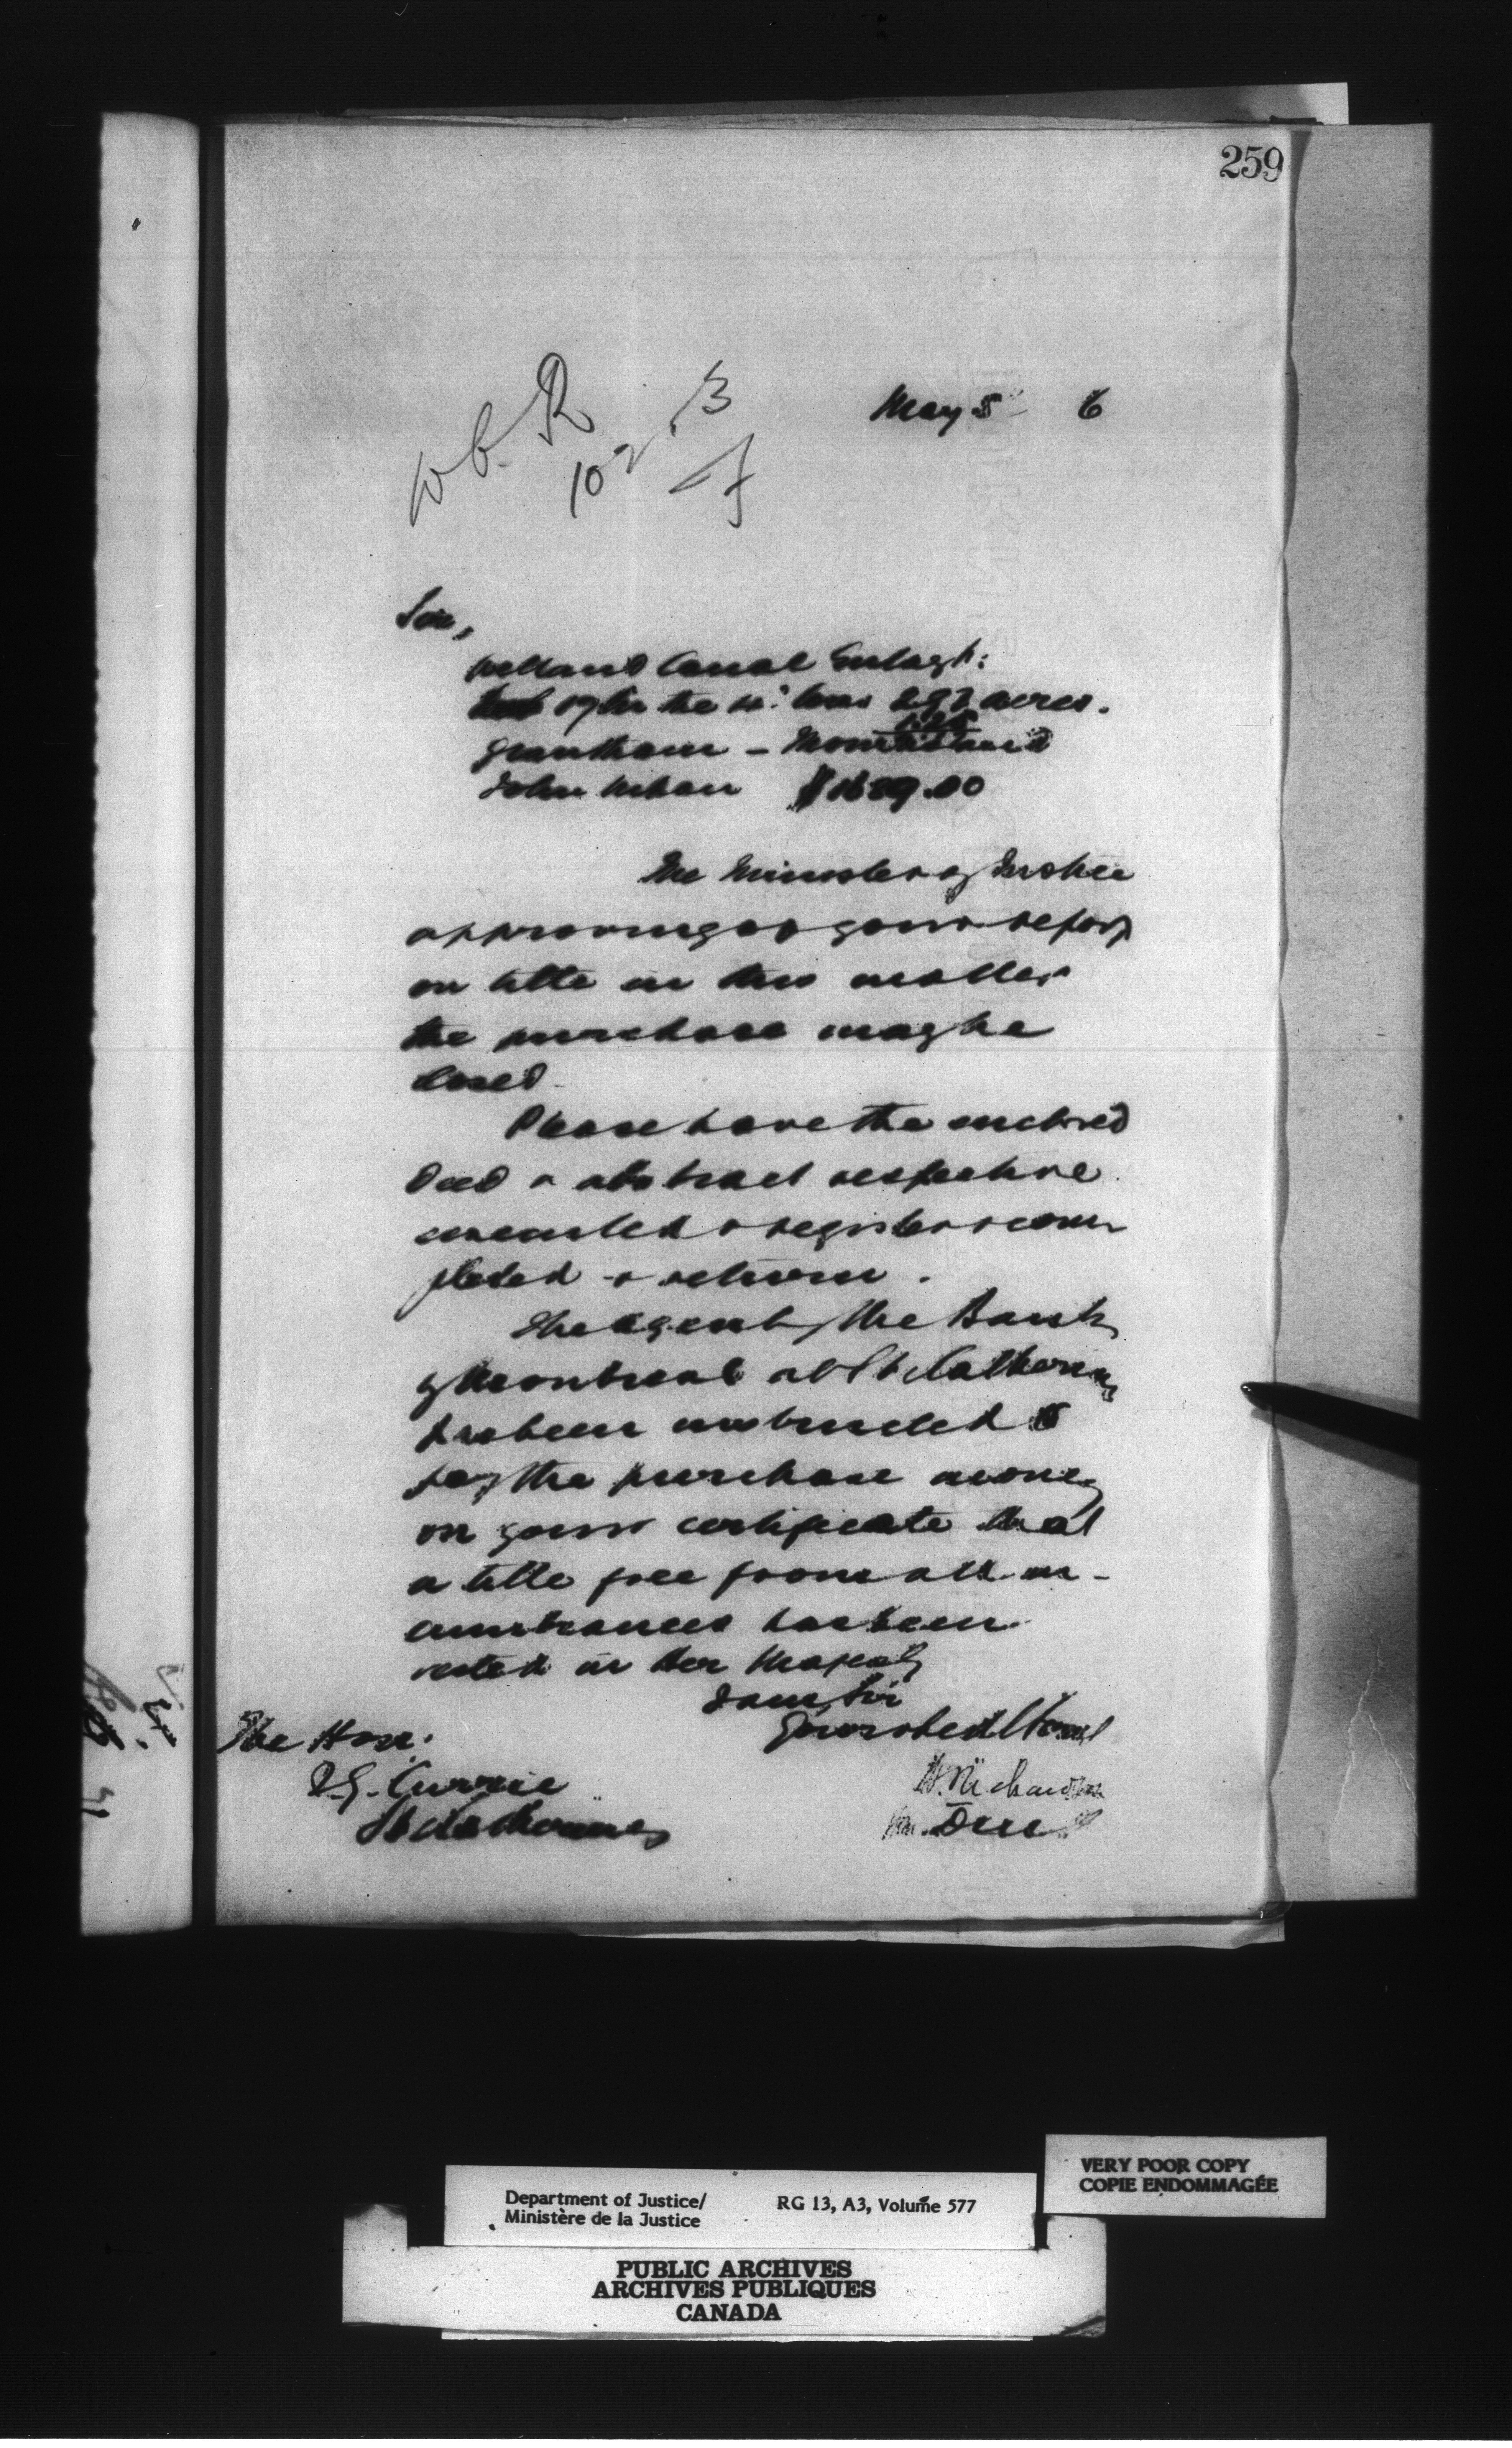 259
May 5 6
102
Sir,
Welland Canal Enlargt:
17 in the 4: Con 292 acres.
Grantham —
John $1689.00
The Minister of Justice
approving of your report
on title in this matter
the purchase may be
closed.
Please have the enclosed
deed & abstract respective
executed & registered & com
pleted & return.
The agent of the Bank
of Montreal at St Catherines
has been instructed to
pay the purchase money
on your certificate that
a title free from all in-
cumbrances has been
vested in Her Majesty
I am, Sir
Your obedt Servt
The Hon:
J.G. Currie
St Catherines
H. Richardson
VERY POOR COPY
COPIE ENDOMMAGÉE
Department of Justice/
Ministère de la Justice
RG 13, A3, Volume 577
PUBLIC ARCHIVES
ARCHIVES PUBLIQUES
CANADA